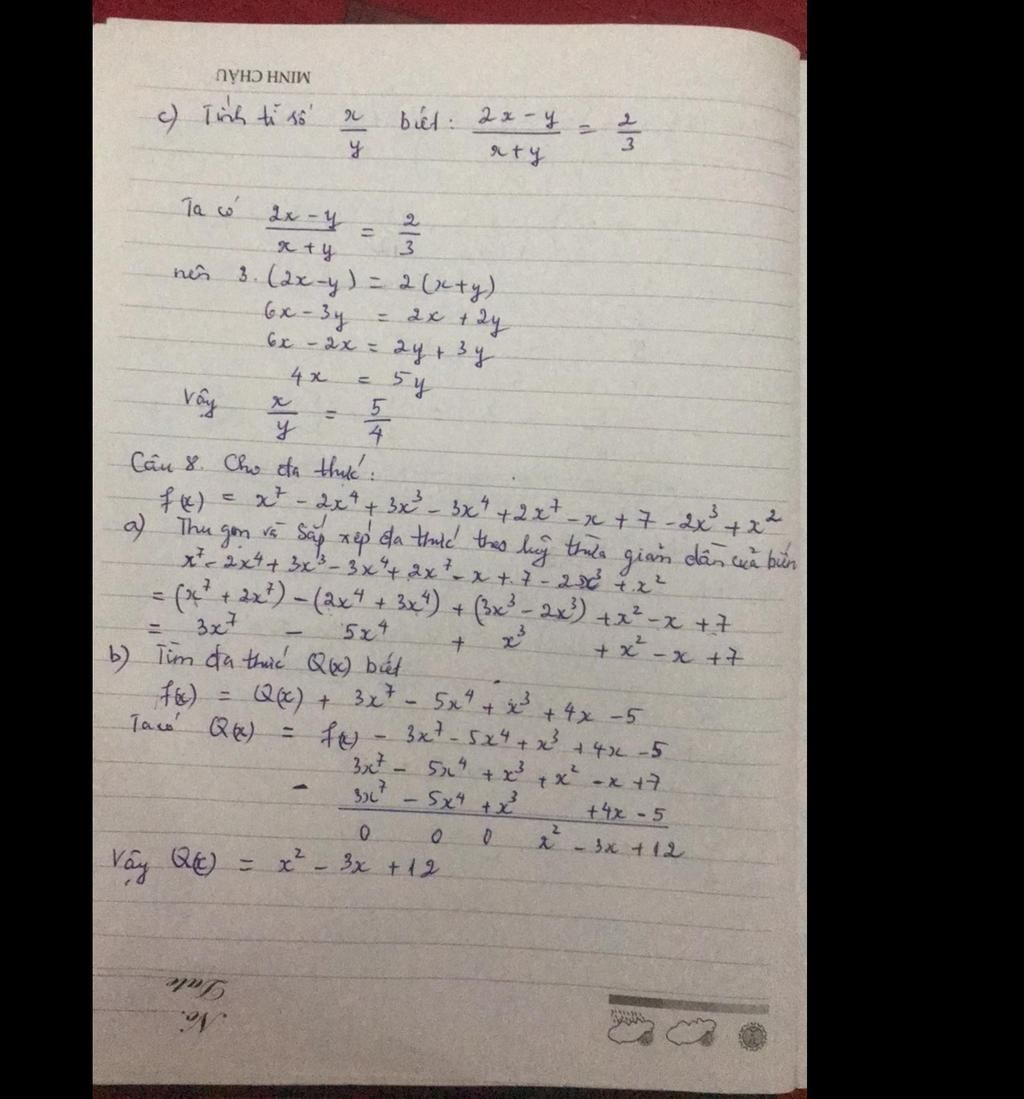 MINH CHÂU
c) Tính tỉ số x/y biết: (2x - y)/(x + y) = 2/3
Ta có (2x - y)/(x + y) = 2/3
nên 3. (2x - y) = 2(x + y)
6x - 3y = 2x + 2y
6x - 2x = 2y + 3y
4x = 5y
Vậy x/y = 5/4
Câu 8. Cho đa thức:
f(x) = x⁷ - 2x⁴ + 3x³ - 3x⁴ + 2x⁷ - x + 7 - 2x³ + x²
a) Thu gọn và sắp xếp đa thức theo luỹ thừa giảm dần của biến
x⁷ - 2x⁴ + 3x³ - 3x⁴ + 2x⁷ - x + 7 - 2x³ + x²
= (x⁷ + 2x⁷) - (2x⁴ + 3x⁴) + (3x³ - 2x³) + x² - x + 7
= 3x⁷ - 5x⁴ + x³ + x² - x + 7
b) Tìm đa thức Q(x) biết
f(x) = Q(x) + 3x⁷ - 5x⁴ + x³ + 4x - 5
Ta có Q(x) = f(x) - 3x⁷ - 5x⁴ + x³ + 4x - 5
3x⁷ - 5x⁴ + x³ + x² - x + 7
- 3x⁷ - 5x⁴ + x³ + 4x - 5
0 0 0 x² - 3x + 12
Vậy Q(x) = x² - 3x + 12
Date
No.